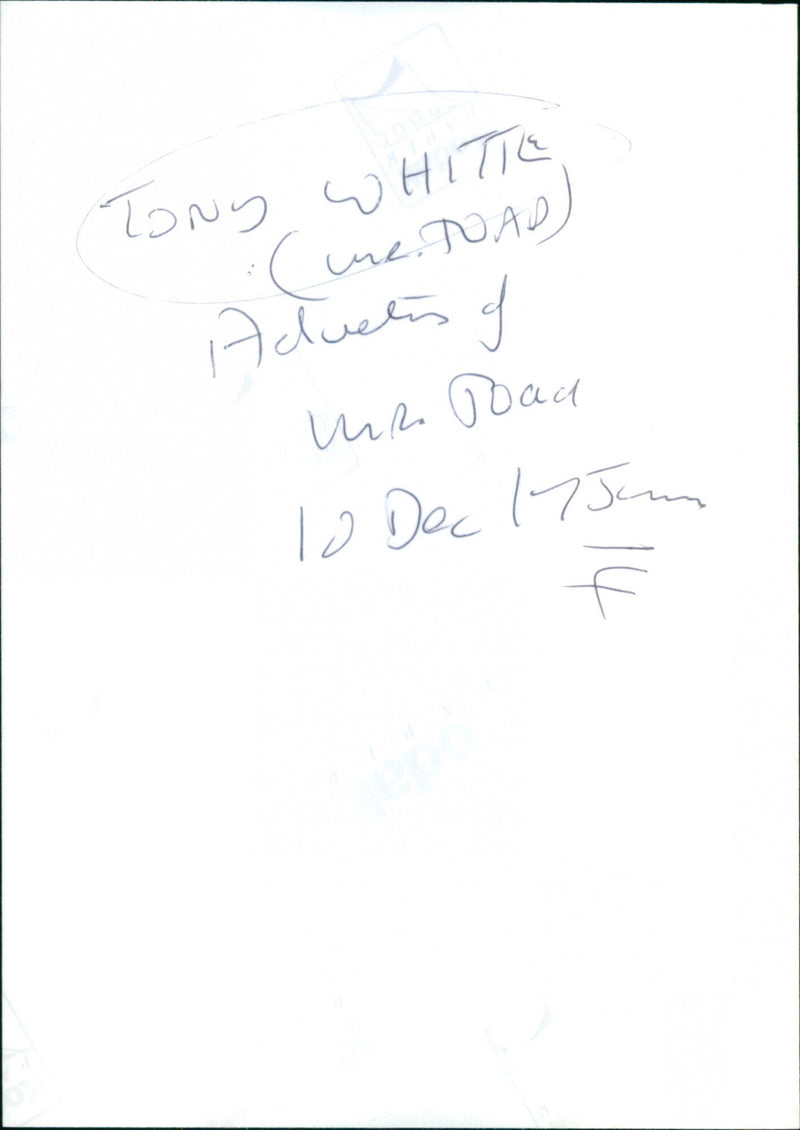 TONY WHITTLE
(MR. TOAD)
Adventures of
MR. Toad
10 Dec 17 Jan
F